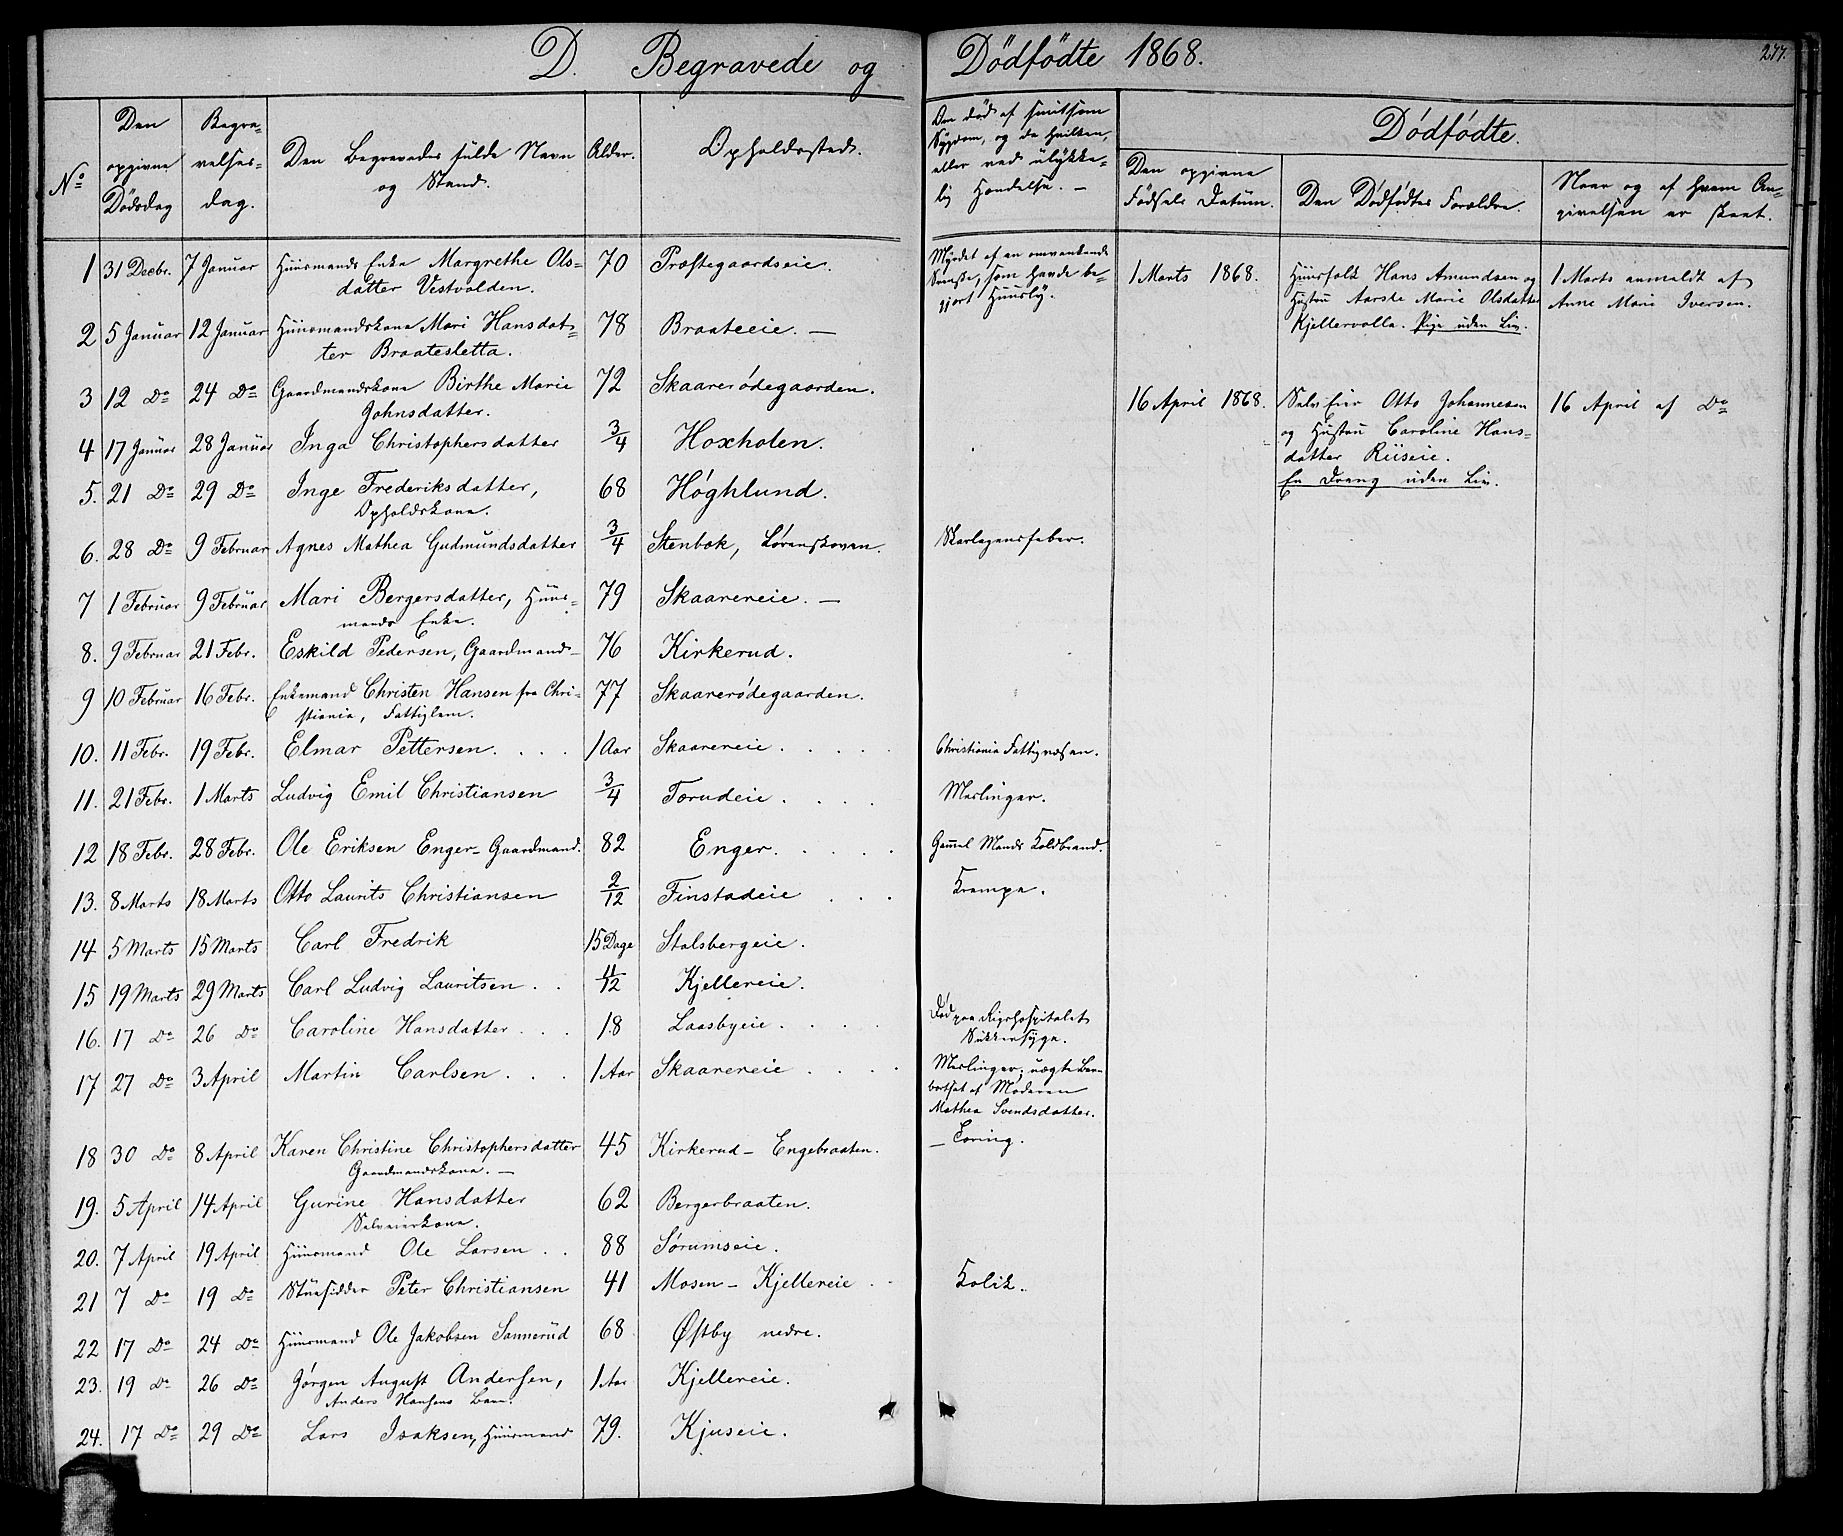 D. Begravede og Dödfödte 1868.
277.
No
Den opgivne Dödsdag
Begravelsesdag.
Den Begravedes fulde Navn og Stand.
Alder.
Opholdssted.
Om död af smitsom Sygdom, og da hvilken, eller ved ulykkelig Hændelse. -
Dødfødte.
Den opgivne Fødsels Datum.
Den Dødfødtes Forældre.
Naar og af hvem Angivelsen er skeet.
1 31 Decbr. 7 Januar Huusmands Enke Margrethe Olsdatter Vestvolden. 70 Præstegaardseie. Myrdet af en omvankende Svenske, som havde begjort Huusly.
2 5 Januar 12 Januar Huusmandskone Mari Hansdatter Braatesletta. 78 Braateeie. —
3 12 Do 24 Do Gaardmandskone Birthe Marie Johnsdatter. 72 Skaarerødegaarden.
4 17 Januar 28 Januar Inga Christophersdatter 3/4 Hoxholen.
5. 21 Do 29 Do Inge Frederiksdatter, Opholdskone. 68 Høghlund.
6. 28 Do 9 Februar Agnes Mathea Gudmundsdatter 3/4 Stenbok, Lørenskoven. Skarlagensfeber.
7 1 Februar 9 Februar Mari Bergersdatter, Huusmands Enke. 79 Skaarereie. —
8. 9 Februar 21 Febr. Eskild Pedersen, Gaardmand 76 Kirkerud.
9 10 Februar 16 Febr. Enkemand Christen Hansen fra Christiania, Fattiglem. 77 Skaarerødegaarden.
10. 11 Febr. 19 Febr. Elmar Pettersen. . . . 1 Aar Skaarereie . . . Christiania Fattigvæsen.
11. 21 Febr. 1 Marts Ludvig Emil Christiansen 3/4 Torudeie . . . Meslinger.
12 18 Febr. 28 Febr. Ole Eriksen Enger- Gaardmand. 82 Enger. . . . Gamel Mands Koldbrand.
13. 8 Marts 18 Marts Otto Laurits Christiansen 2/12 Finstadeie . . . Krampe.
14 5 Marts 15 Marts Carl Fredrik 15 Dage Stalsbergeie.
15 19 Marts 29 Marts Carl Ludvig Lauritsen . . 11/12 Kjellereie.
16. 17 Do 26 Do Caroline Hansdatter. . . . 18 Laasbyeie . . . Död paa Rigshospitalet Sukkersyge.
17 27 Do 3 April Martin Carlsen. . . . 1 Aar Skaarereie . . . . Meslinger; uægte Barn bortsat af Moderen Mathea Svendsdatter.
18 30 Do 8 April Karen Christine Christophersdatter Gaardmandskone. — 45 Kirkerud- Engebraaten. — Tæring.
19. 5 April 14 April Gurine Hansdatter Selveierkone. 62 Bergerbraaten.
20. 7 April 19 April Huusmand Ole Larsen . . 88 Sørumseie.
21 7 Do 19 Do Stuesidder Peter Christiansen 41 Mosen- Kjellereie . . Kolik.
22 17 Do 24 Do Huusmand Ole Jakobsen Sannerud 68 Østby nedre.
23. 19 Do 26 Do Jørgen August Andersen, Anders Hansens Barn. 1 Aar Kjellereie.
24. 17 Do 29 Do Lars Isaksen, Huusmand 79. Kjuseie.
1 Marts 1868. Huusfolk Hans Amundsen og Hustru Aarste Marie Olsdatter Kjellervolla. Pige uden Liv. 1 Marts anmeldt af Anne Marie Iversen.
16 April 1868. Selveier Otto Johannesen og Hustru Caroline Hansdatter Riiseie. En Dreng uden Liv. 16 April af Do